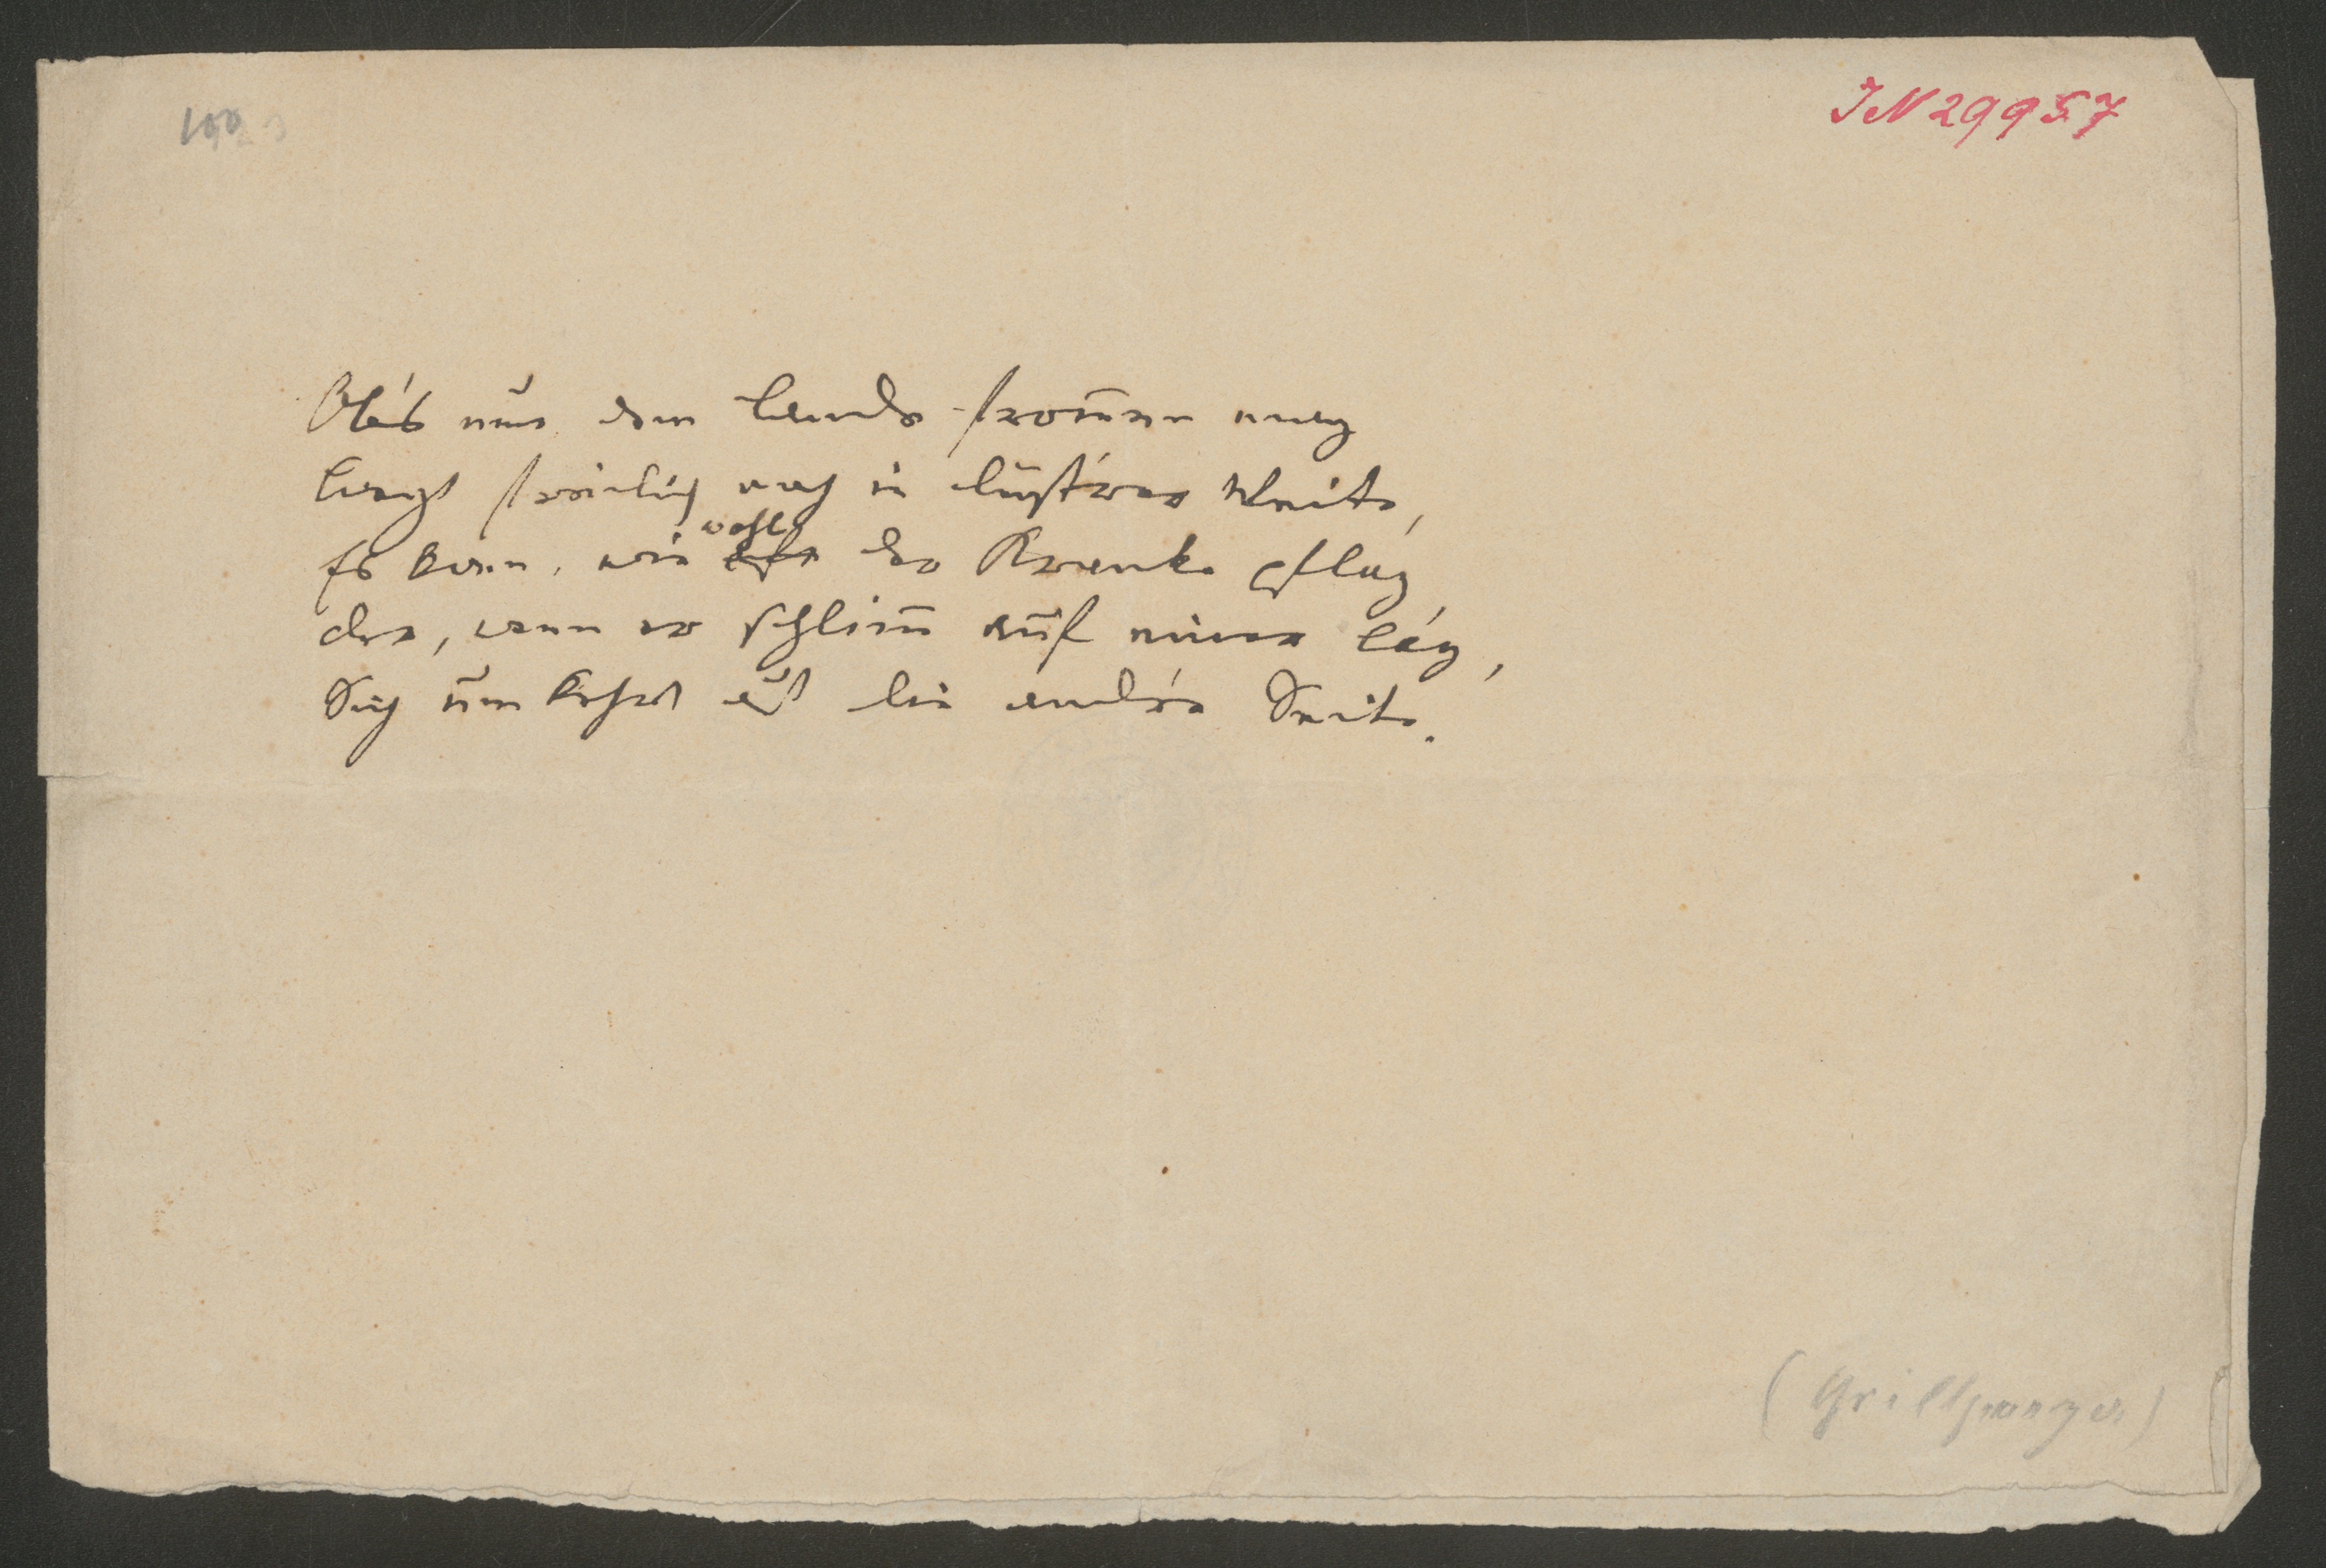 100
IN 29957
Ob's nun dem Lande frommen mag
Liegt freilich noch in düst'rer Weite,
Es kam, wie wohl der Kranke pflag
der, wenn er schlimm auf einer lag,
Sich umkehrt auf die andre Seite.
(Grillparzer)